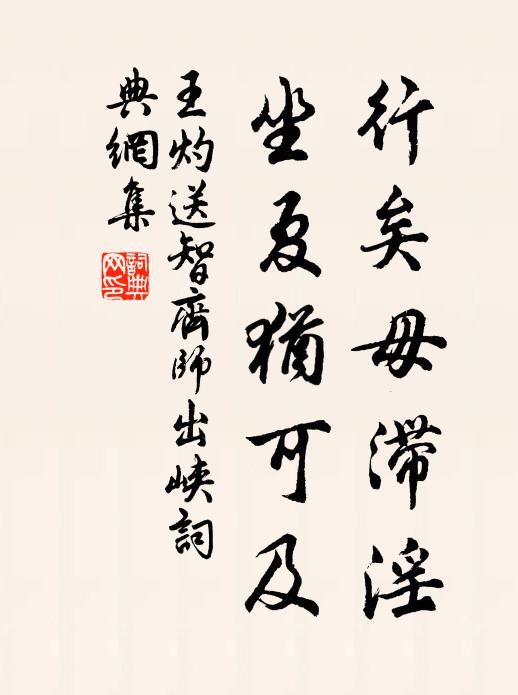 行矣毋滞淫
坐夏猶可及
王灼送智齊師出峽詞
典網集
詞典网印